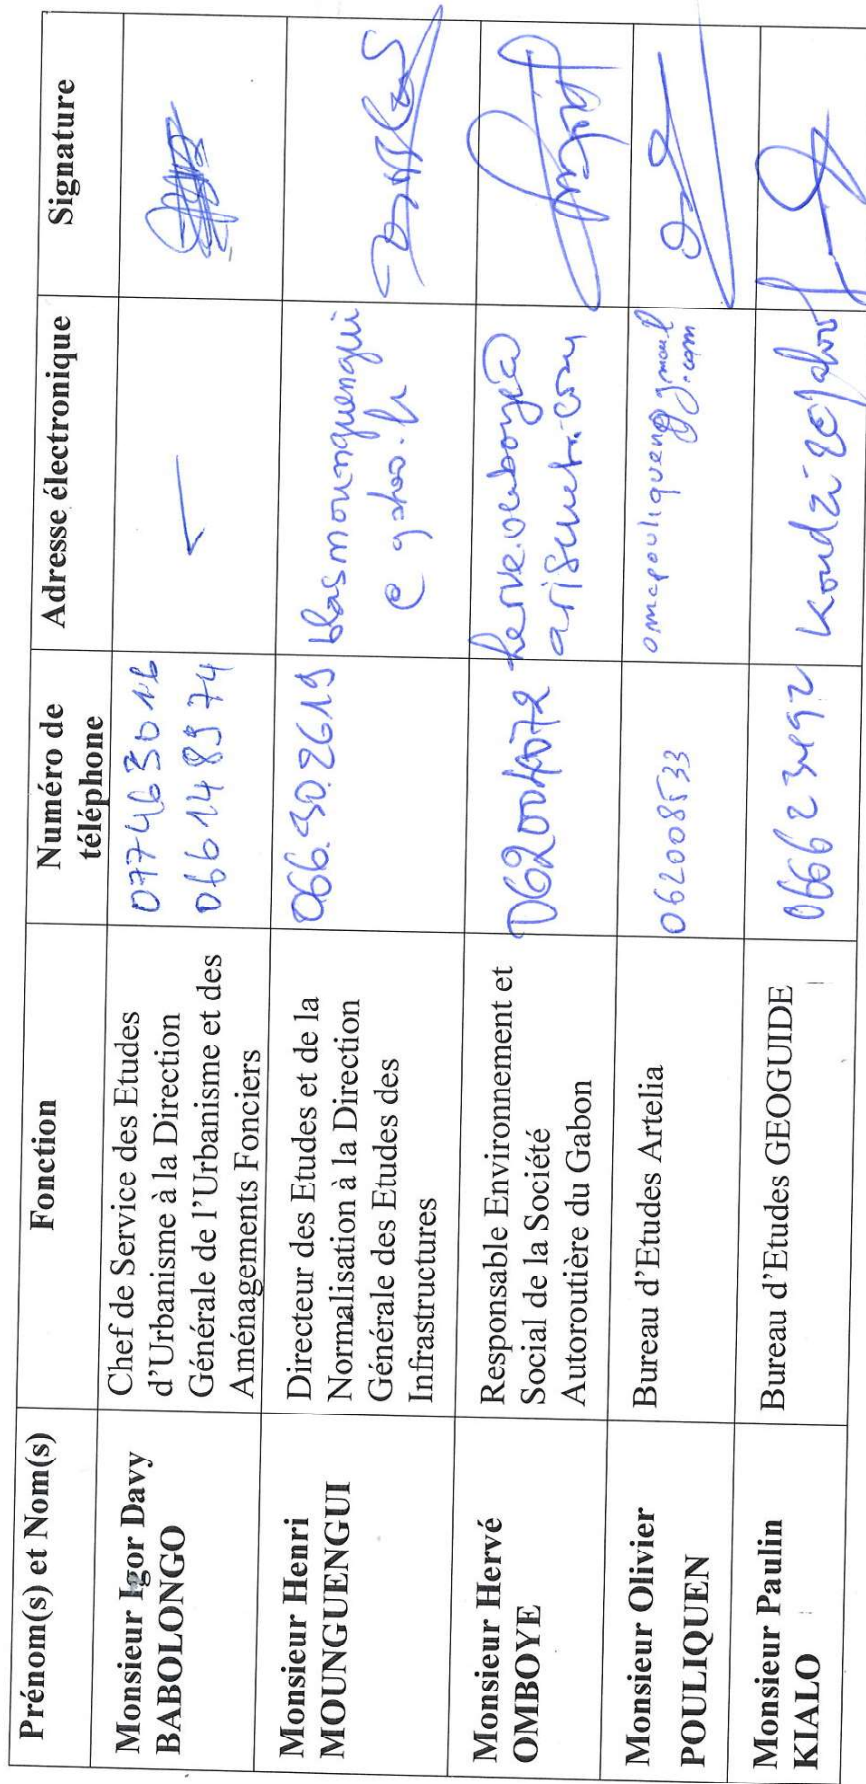 Prénom(s) et Nom(s)
Fonction
Numéro de
téléphone
Adresse électronique
Signature
Monsieur Igor Davy
BABOLONGO
Chef de Service des Etudes
d'Urbanisme à la Direction
Générale de l'Urbanisme et des
Aménagements Fonciers
077463016
066148974
Monsieur Henri
MOUNGUENGUI
Directeur des Etudes et de la
Normalisation à la Direction
Générale des Etudes des
Infrastructures
066.90.26.19
blasmounguengui
@yahoo.fr
Monsieur Hervé
OMBOYE
Responsable Environnement et
Social de la Société
Autoroutière du Gabon
062004072
herve.omboye@
Monsieur Olivier
POULIQUEN
Bureau d'Etudes Artelia
062008533
gmail
.com
Monsieur Paulin
KIALO
Bureau d'Etudes GEOGUIDE